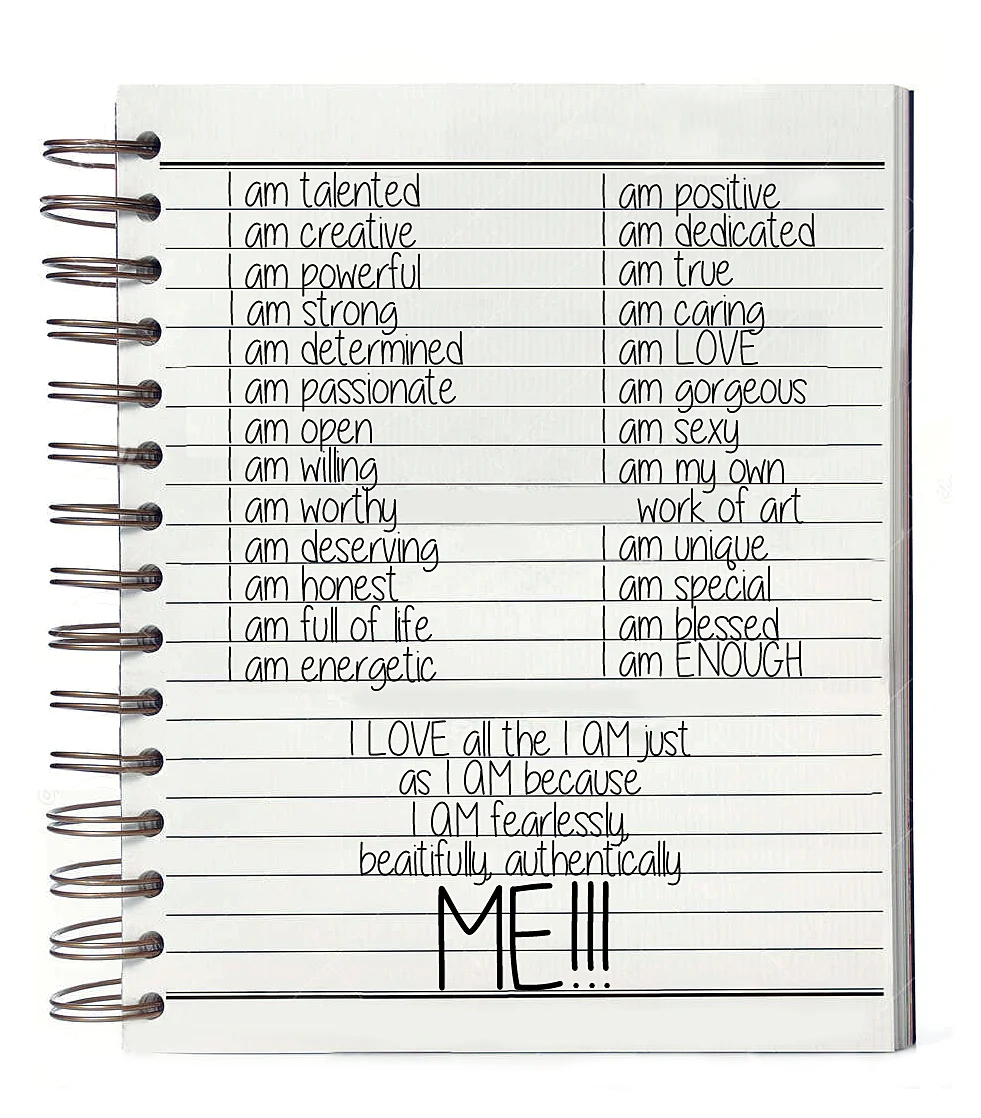 I am talented
I am creative
I am powerful
I am strong
I am determined
I am passionate
I am open
I am willing
I am worthy
I am deserving
I am honest
I am full of life
I am energetic
I am positive
I am dedicated
I am true
I am caring
I am LOVE
I am gorgeous
I am sexy
I am my own
work of art
I am unique
I am special
I am blessed
I am ENOUGH
I LOVE all the I AM just
as I AM because
I AM fearlessly,
beaitifully, authentically
ME!!!